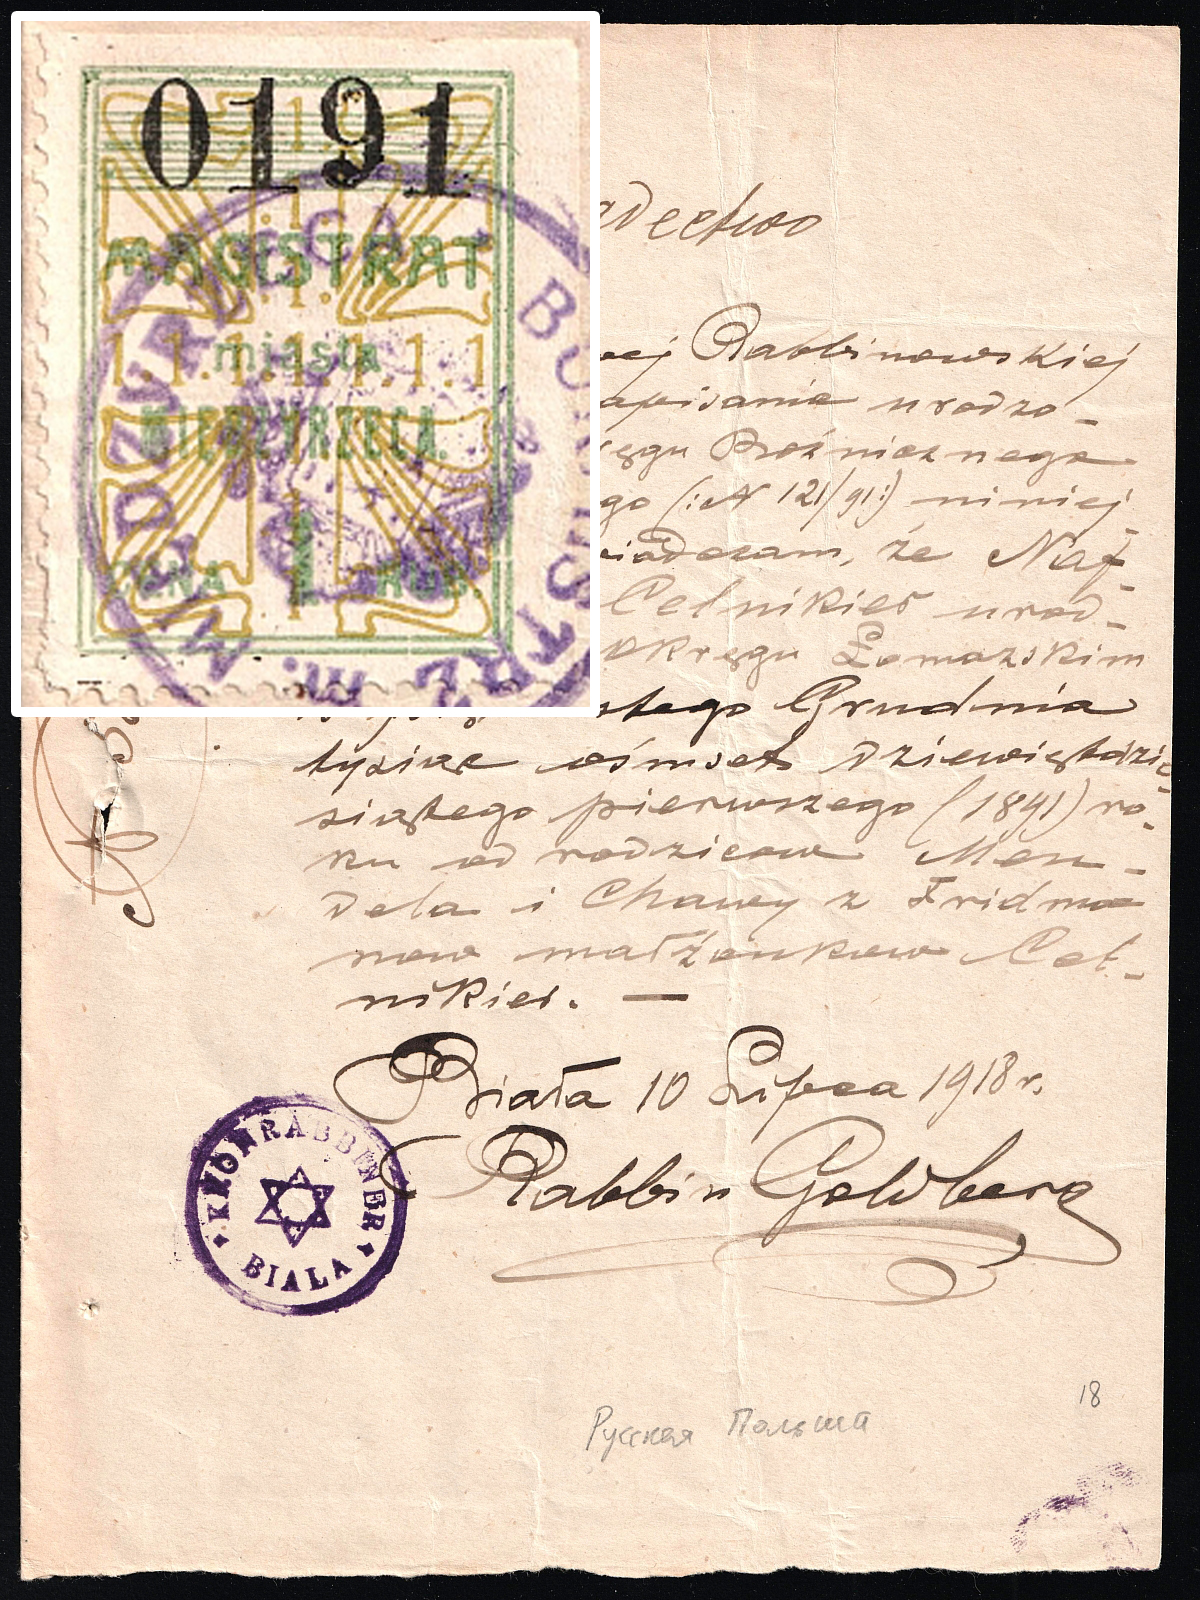 0191
MAGISTRAT
miasta
1.1.1.1.1.1.1.1
MIĘDZYRZECA.
CENA 1 RUB.
BURMISTRZ m. MIĘDZYRZECA
adectwo
Rabbinowskiej
apisania urodzo-
ęgu Bożniczego
go (:N 121/91:) niniej-
iadczam, że Naf-
Celnikier urod-
okręgu Łomazskim
stego Grudnia
tysiąc ośmset dziewięćdzie-
siątego pierwszego (1891) ro-
ku od rodzicow Men-
dela i Chawy z Fridma-
now małżonkow Cel-
nikier. —
Biała 10 Lipca 1918 r.
Rabbin Goldberg
KRONRABBINER
BIALA
18
Русская Польша